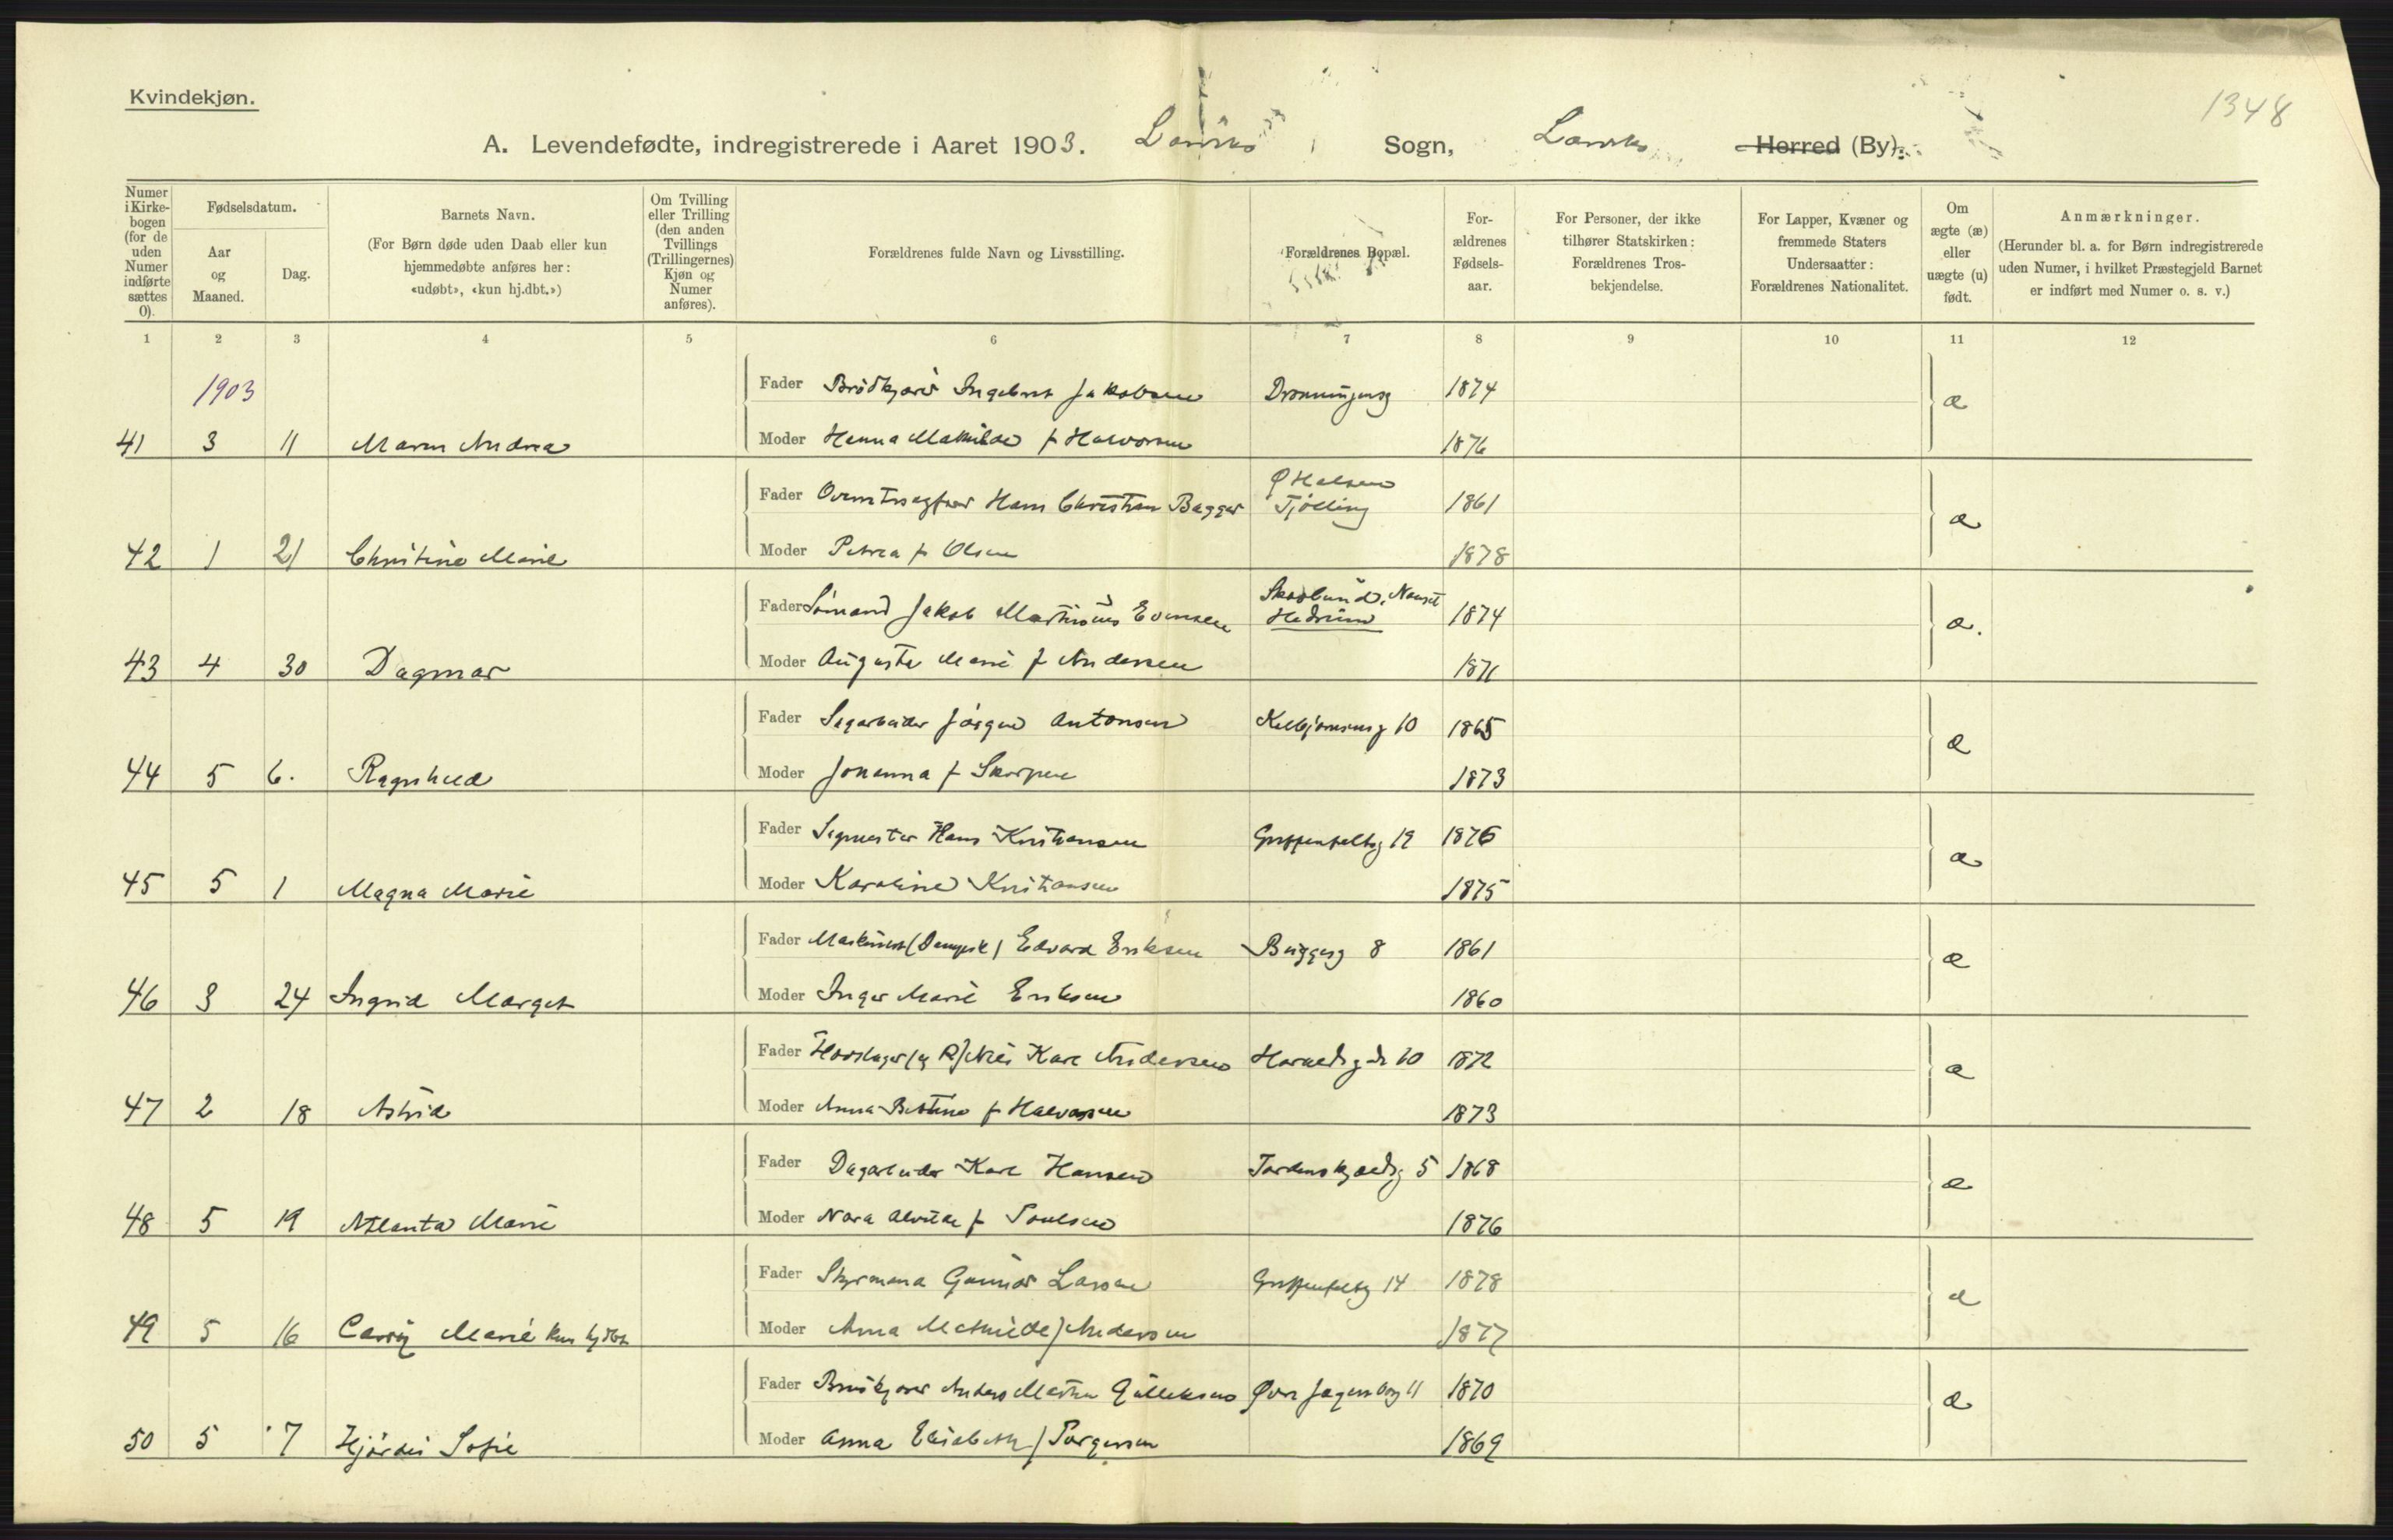 Kvindekjøn.
1348
A. Levendefødte, indregistrerede i Aaret 1903. Larviks Sogn, Larviks Herred (By).
Numer i Kirkebogen (for de uden Numer indførte sættes 0).
Fødselsdatum.
Aar og Maaned.
Dag.
Barnets Navn.
(For Børn døde uden Daab eller kun hjemmedøbte anføres her: «udøbt», «kun hj.dbt.»)
Om Tvilling eller Trilling (den anden Tvillings (Trillingernes) Kjøn og Numer anføres).
Forældrenes fulde Navn og Livsstilling.
Forældrenes Bopæl.
Forældrenes Fødselsaar.
For Personer, der ikke tilhører Statskirken: Forældrenes Trosbekjendelse.
For Lapper, Kvæner og fremmede Staters Undersaatter: Forældrenes Nationalitet.
Om ægte (æ) eller uægte (u) født.
Anmærkninger.
(Herunder bl. a. for Børn indregistrerede uden Numer, i hvilket Præstegjeld Barnet er indført med Numer o. s. v.)
1 2 3 4 5 6 7 8 9 10 11 12
1903
Fader Brødkjører Ingebret Jakobsen Dronningensg 1874 æ
41 3 11 Maren Andrea Moder Hanna Mathilde f Halvorsen 1876
Ø Halsen
Fader Hans Christian Bagger Tjølling 1861 æ
42 1 21 Christine Marie Moder Petrea f Olsen 1878
Nanset
Fader Sømand Jakob Martinius Evensen Hedrum 1874 æ.
43 4 30 Dagmar Moder Augusta Marie f Andersen 1871
Fader Sagarbeider Jörgen Antonsen Kolbjørnsensg 10 1865 æ
44 5 6. Ragnhild Moder Johanna f Skorpen 1873
Fader Sagmester Hans Kristiansen Griffenfeltsg 19 1876 æ
45 5 1 Magna Marie Moder Karoline Kristiansen 1875
Fader Maskinist (Dampsk) Edvard Eriksen Bryggerg 8 1861 æ
46 3 24 Ingrid Margit Moder Inger Marie Eriksen 1860
Fader Hovslager Nils Karl Andersen Haraldsgd 10 1872 æ
47 2 18 Astrid Moder Anna Bettine f Halvorsen 1873
Fader Dagarbeider Karl Hansen Tordenskjoldsg 5 1868 æ
48 5 19 Atlanta Marie Moder Nora Alvilde f Paulsen 1876
Fader Styrmand Gunnar Larsen Griffenfeltsg 14 1878 æ
49 5 16 Carry Marie kun hjdbt Moder Anna Mathilde f Andersen 1877
Fader Anders Martin Gulliksen Øvre Jegersborg 11 1870 æ
50 5 7 Hjördis Sofie Moder Anna Elisabeth f Torgersen 1869